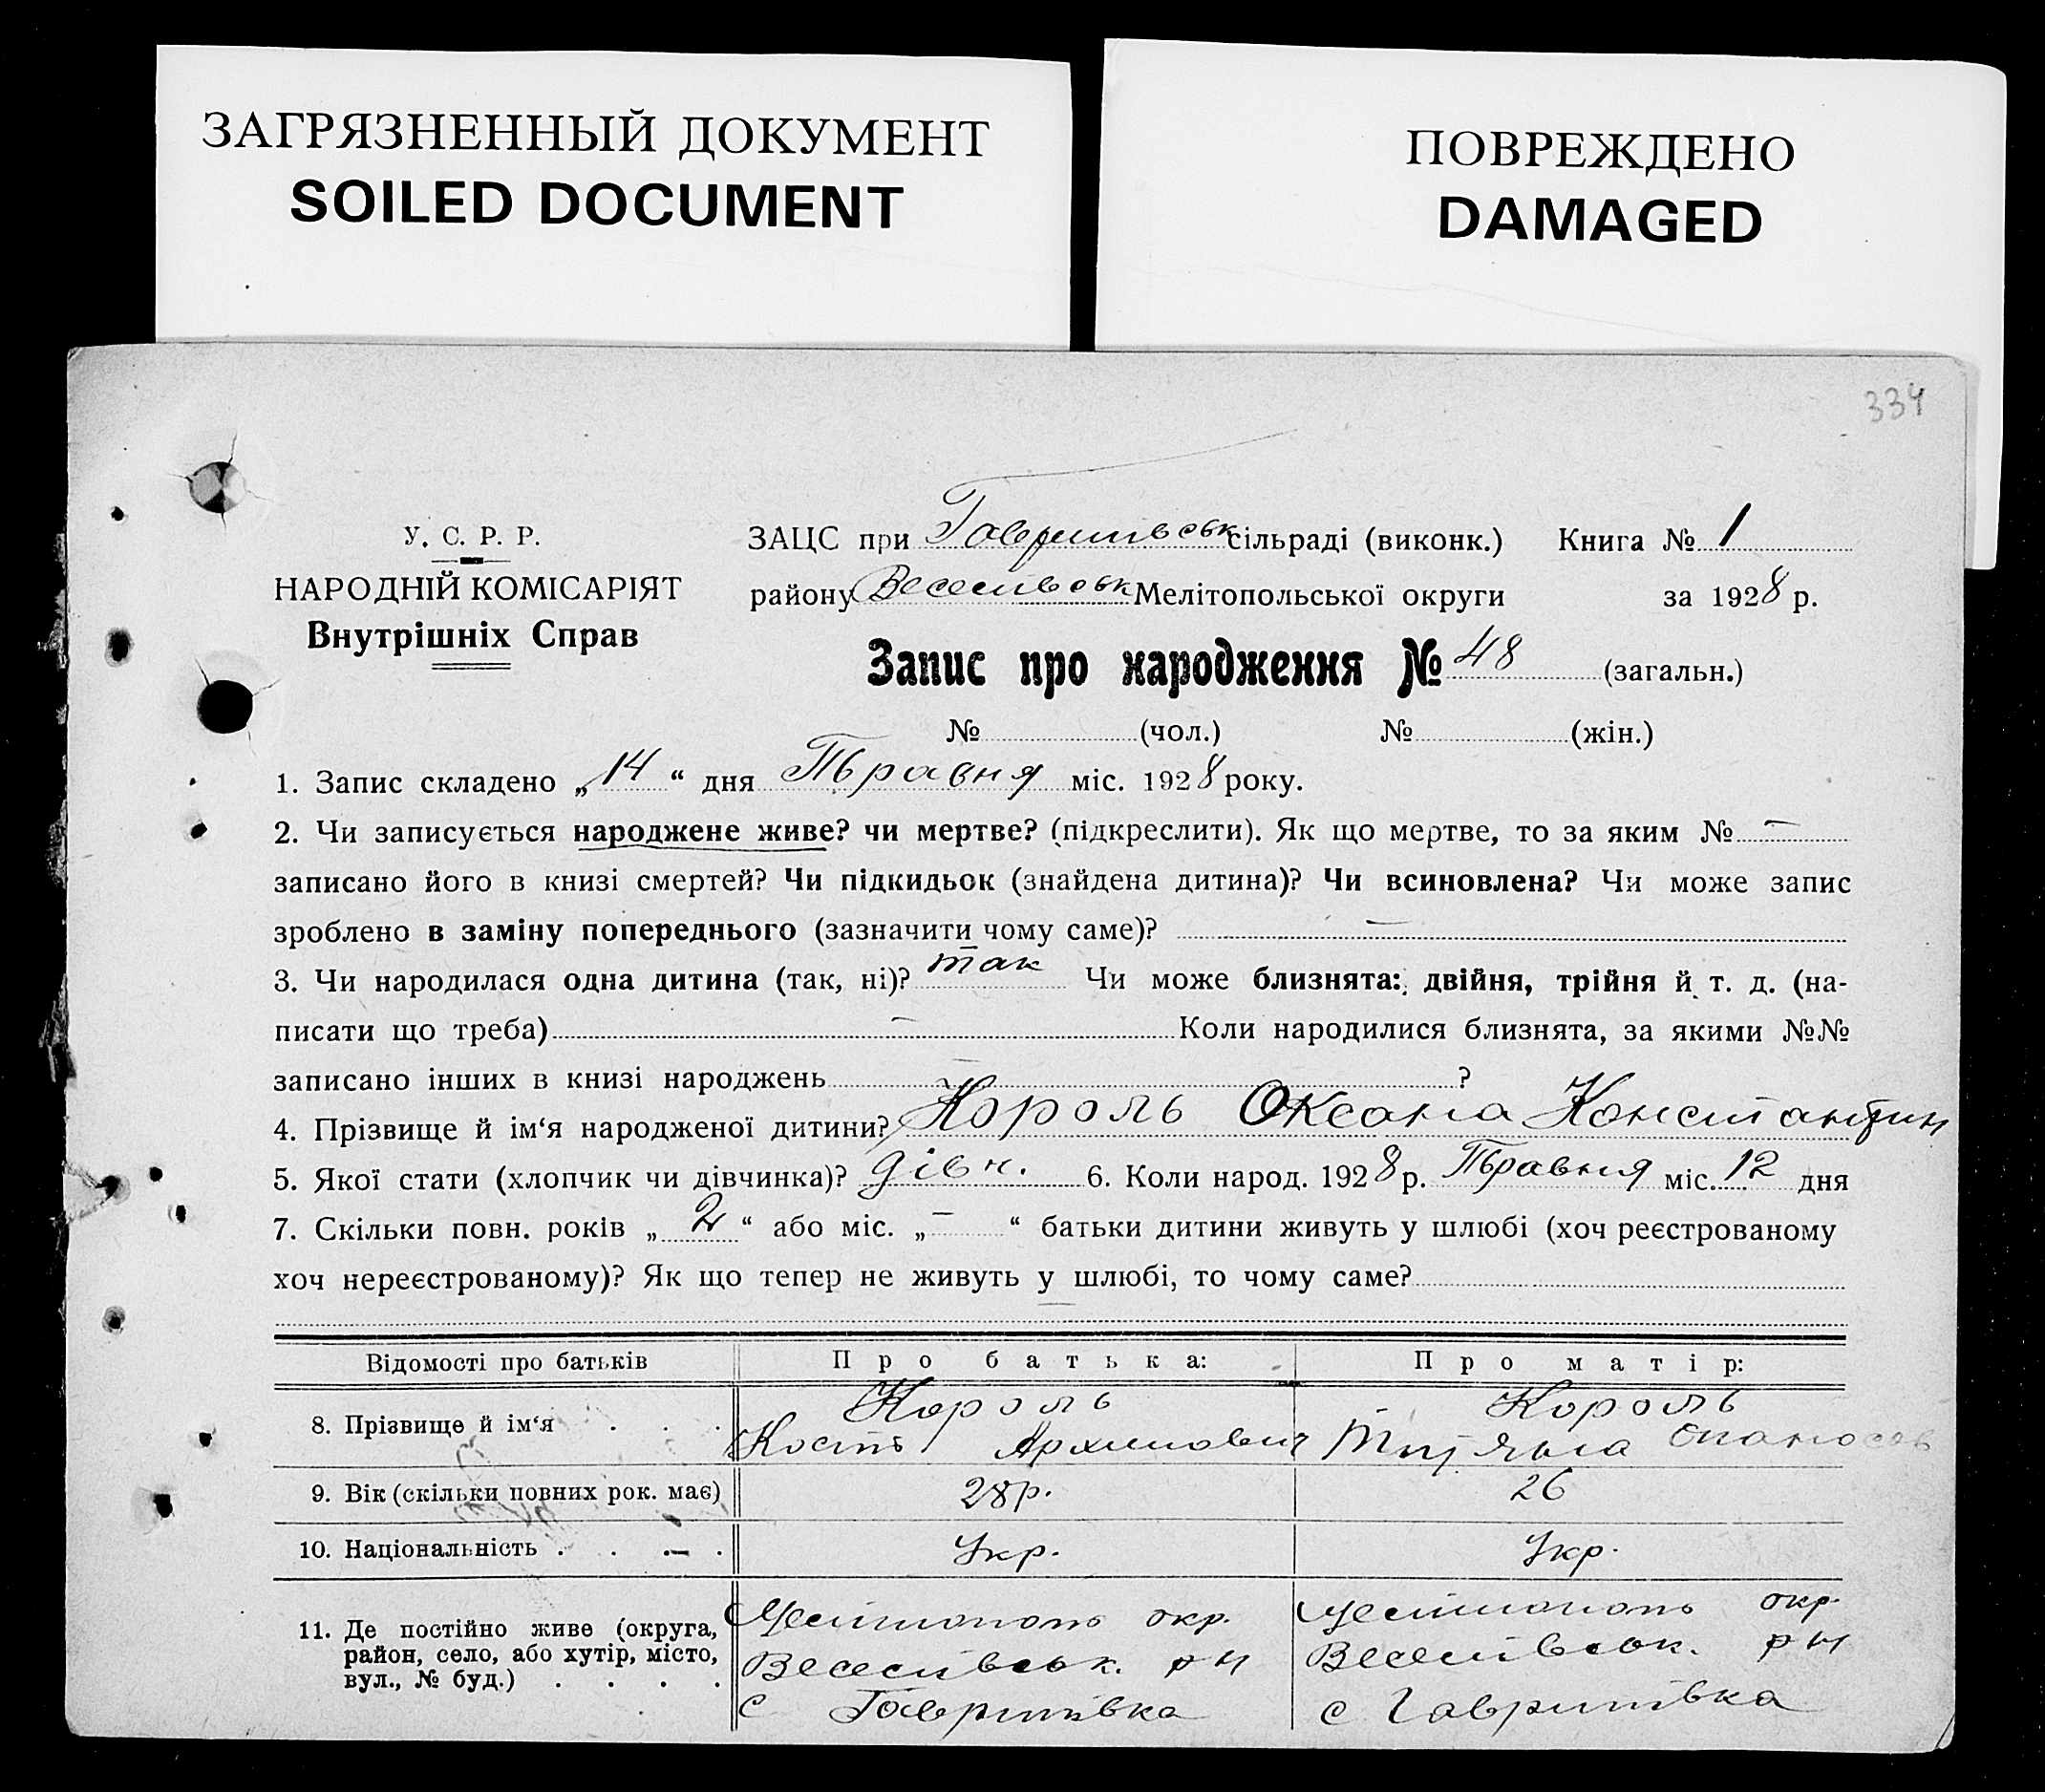 ЗАГРЯЗНЕННЫЙ ДОКУМЕНТ
SOILED DOCUMENT
ПОВРЕЖДЕНО
DAMAGED
334
У. С. Р. Р.
НАРОДНІЙ КОМІСАРІЯТ
Внутрішніх Справ
ЗАЦС при Гаврилівськ сільраді (виконк.) Книга № 1
району Веселівськ Мелітопольської округи за 1928 р.
Запис про народження № 48 (загальн.)
№ (чол.) № (жін.)
1. Запис складено „14“ дня Травня міс. 1928 року.
2. Чи записується народжене живе? чи мертве? (підкреслити). Як що мертве, то за яким № —
записано його в книзі смертей? Чи підкидьок (знайдена дитина)? Чи всиновлена? Чи може запис
зроблено в заміну попереднього (зазначити чому саме)? —
3. Чи народилася одна дитина (так, ні)? так Чи може близнята: двійня, трійня й т. д. (на-
писати що треба) — Коли народилися близнята, за якими №№
записано інших в книзі народжень — ?
4. Прізвище й ім‘я народженої дитини? Король Оксана Константин
5. Якої стати (хлопчик чи дівчинка)? дівч. 6. Коли народ. 1928 р. Травня міс. 12 дня
7. Скільки повн. років „2“ або міс. „—“ батьки дитини живуть у шлюбі (хоч реєстрованому
хоч нереєстрованому)? Як що тепер не живуть у шлюбі, то чому саме?
—
Відомості про батьків Про батька: Про матір:
8. Прізвище й ім‘я Король Король
Кость Архипович Тетяна Опанасов
9. Вік (скільки повних рок. має) 28р. 26
10. Національність Укр. Укр.
11. Де постійно живе (округа, Мелітополь окр. Мелітополь окр.
район, село, або хутір, місто, Веселівськ. р н Веселівськ. р н
вул., № буд.) с Гаврилівка с Гаврилівка